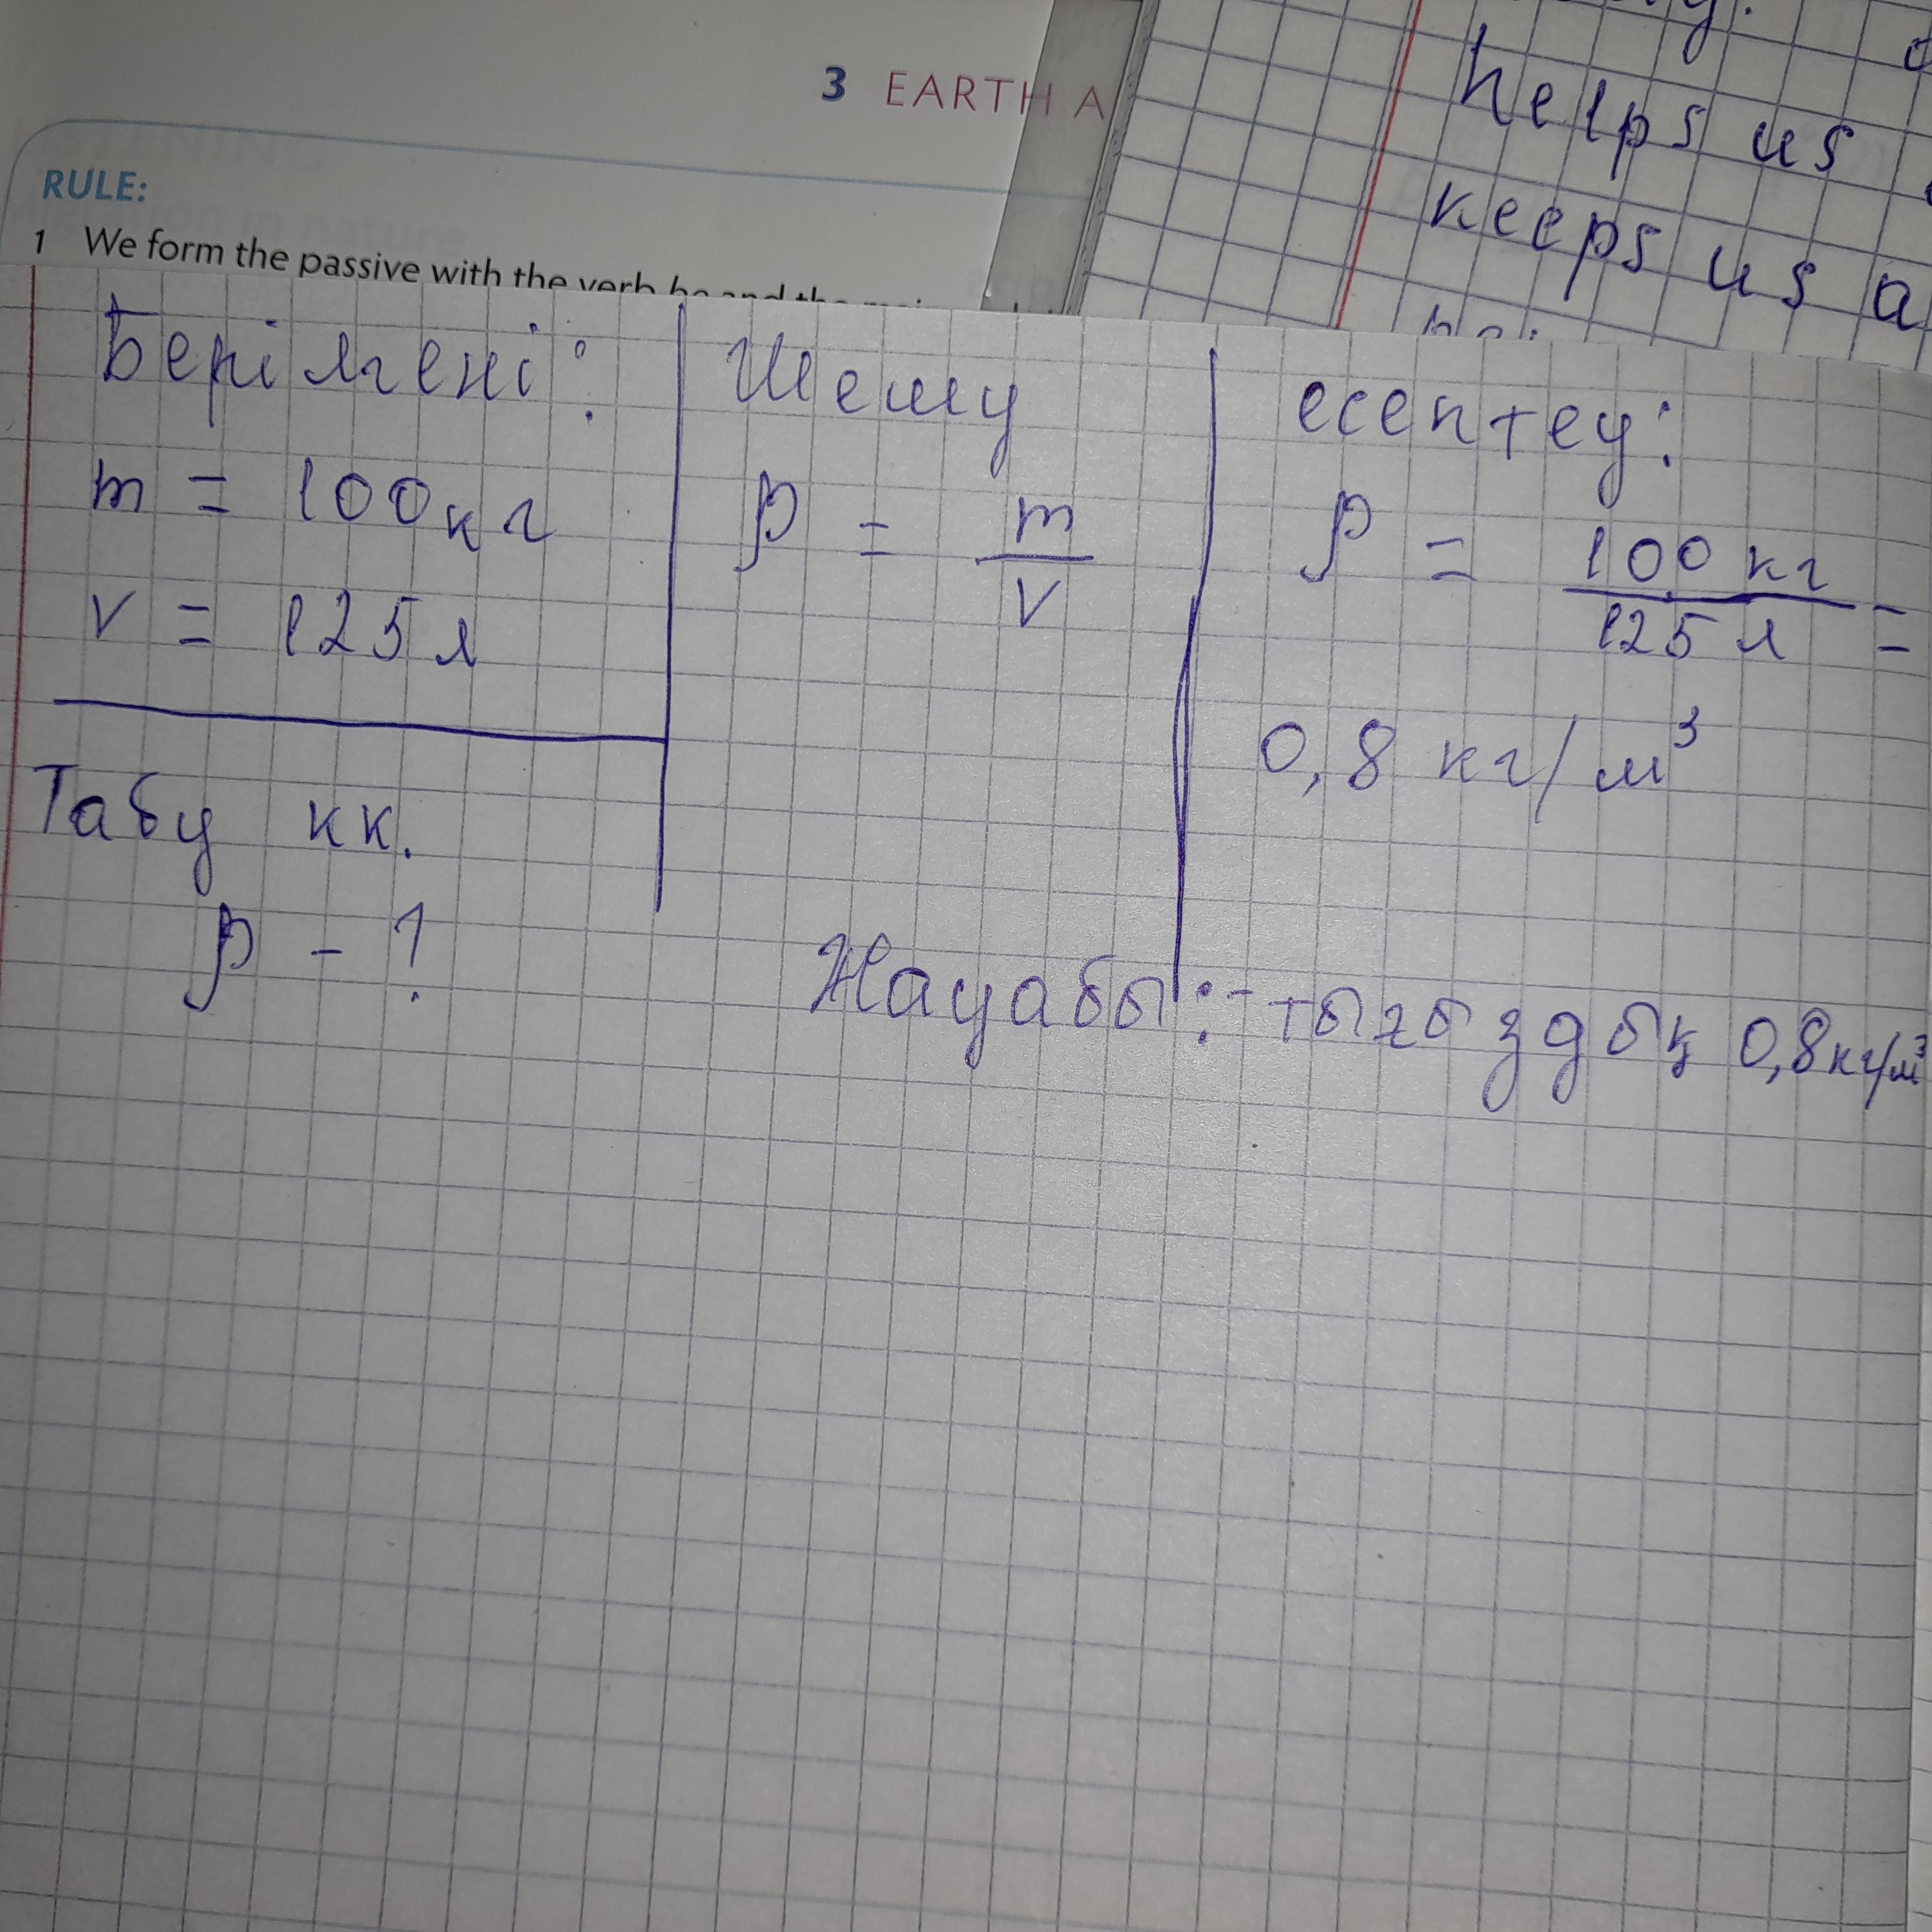 3 EARTH A
RULE:
1 We form the passive with the verb be and the
helps us
keeps us a
Берілгені:
m = 100кг
v = 125л
Табу кк.
ρ - ?
Шешу
ρ = m/v
есептеу:
ρ = 100 кг/125 л =
0,8 кг/м³
Жауабы:-тығыздық 0,8кг/м³